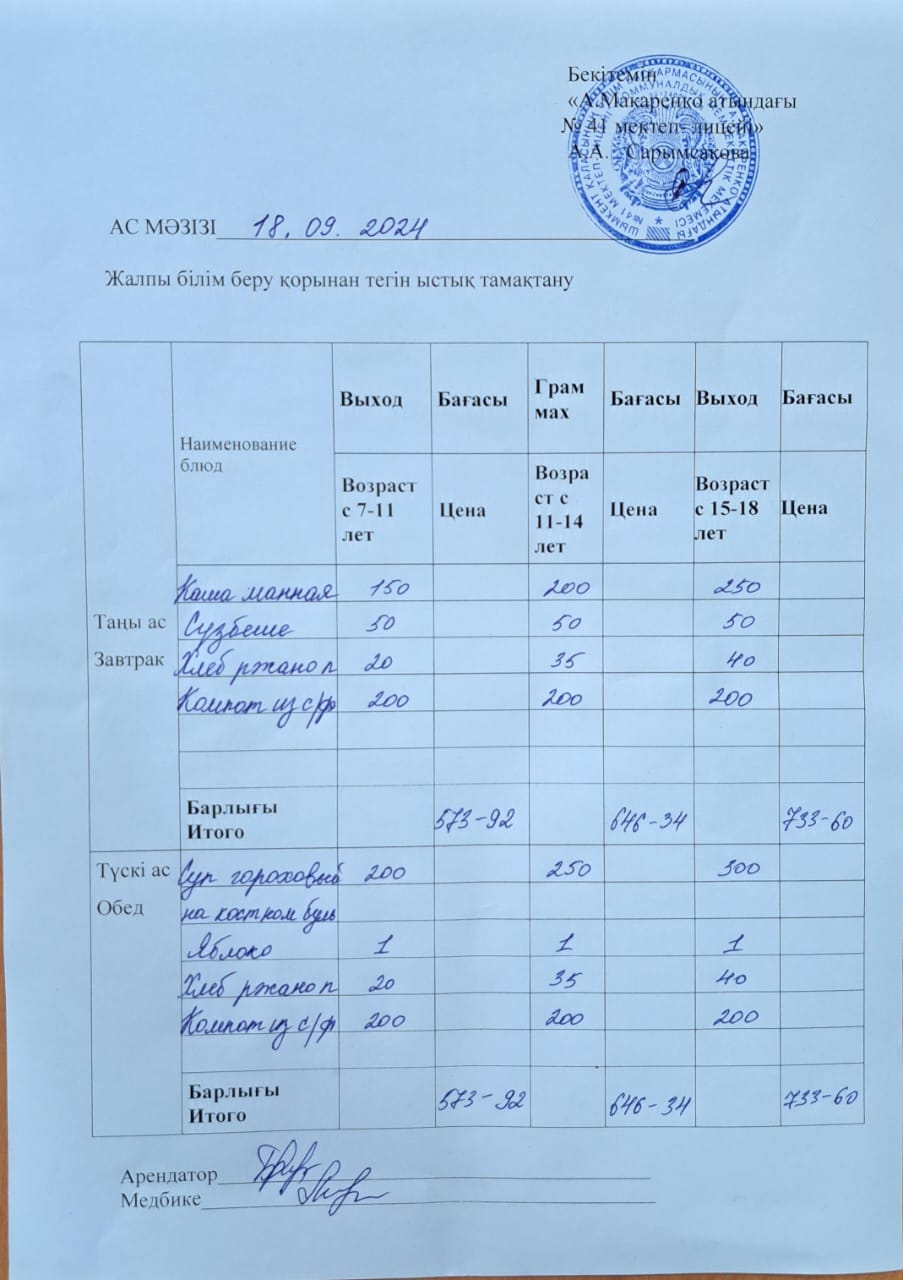 Бекітемін
«А.Макаренко атындағы
№ 41 мектеп- лицейі»
А.А. Сарымсакова
АС МӘЗІЗІ 18. 09. 2024
Жалпы білім беру қорынан тегін ыстық тамақтану
Наименование блюд
Выход Бағасы Грам мах Бағасы Выход Бағасы
Возраст с 7-11 лет Цена Возра ст с 11-14 лет Цена Возраст с 15-18 лет Цена
Таңы ас
Завтрак
Каша манная 150 200 250
Сузбеше 50 50 50
Хлеб ржано п 20 35 40
Компот из с/ф 200 200 200
Барлығы Итого 573-92 646-34 733-60
Түскі ас
Обед
Суп гороховый 200 250 300
на костном буль
Яблоко 1 1 1
Хлеб ржано п 20 35 40
Компот из с/ф 200 200 200
Барлығы Итого 573-92 646-34 733-60
Арендатор
Медбике